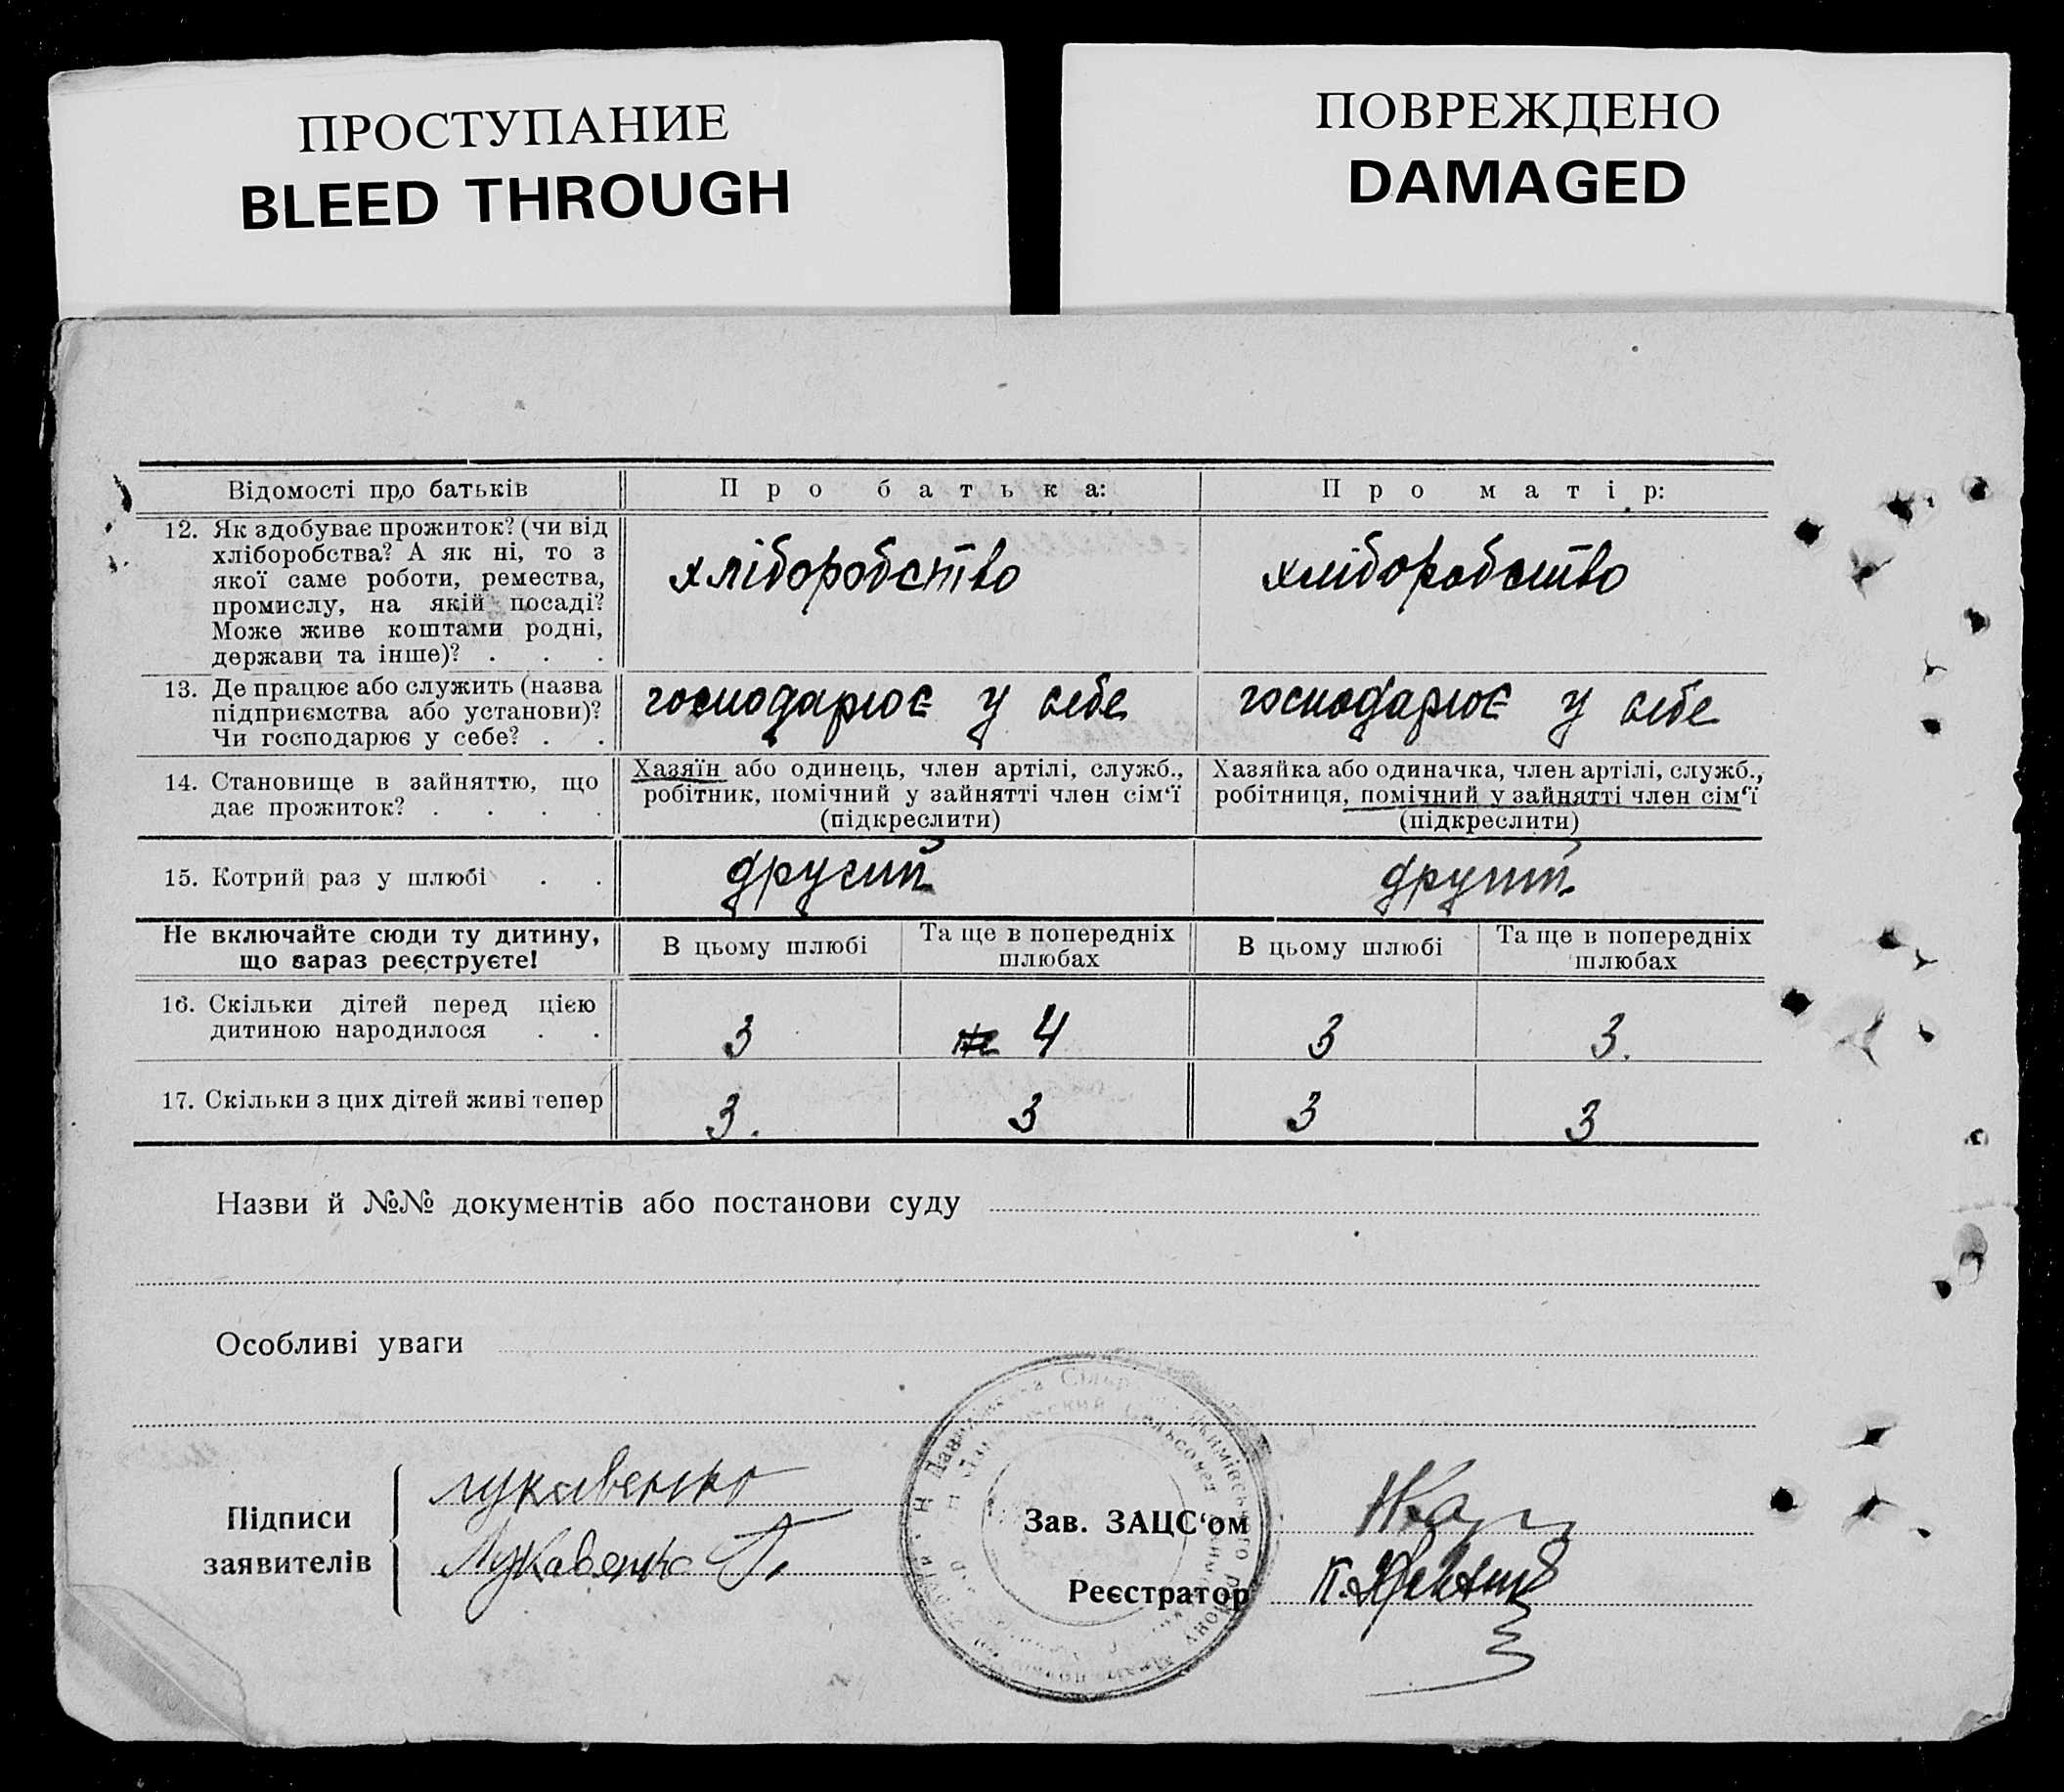 ПРОСТУПАНИЕ
BLEED THROUGH
ПОВРЕЖДЕНО
DAMAGED
Відомості про батьків
Про батька:
Про матір:
12. Як здобуває прожиток? (чи від
хліборобства? А як ні, то з
якої саме роботи, ремества,
промислу, на якій посаді?
Може живе коштами родні,
держави та інше)? . . .
хліборобство
хліборобство
13. Де працює або служить (назва
підприємства або установи)?
Чи господарює у себе? . .
господарює у себе
господарює у себе
14. Становище в зайняттю, що
дає прожиток? . . . .
Хазяїн або одинець, член артілі, служб.,
робітник, помічний у зайнятті член сім‘ї
(підкреслити)
Хазяйка або одиначка, член артілі, служб.,
робітниця, помічний у зайнятті член сім‘ї
(підкреслити)
15. Котрий раз у шлюбі . .
другий
другий
Не включайте сюди ту дитину,
що зараз реєструєте!
В цьому шлюбі
Та ще в попередніх
шлюбах
В цьому шлюбі
Та ще в попередніх
шлюбах
16. Скільки дітей перед цією
дитиною народилося . .
3
4
3
3.
17. Скільки з цих дітей живі тепер
3.
3
3
3
Назви й №№ документів або постанови суду
Особливі уваги
Підписи
заявителів
Лукавенко
Лукавенко Г.
Зав. ЗАЦС‘ом
Реєстратор